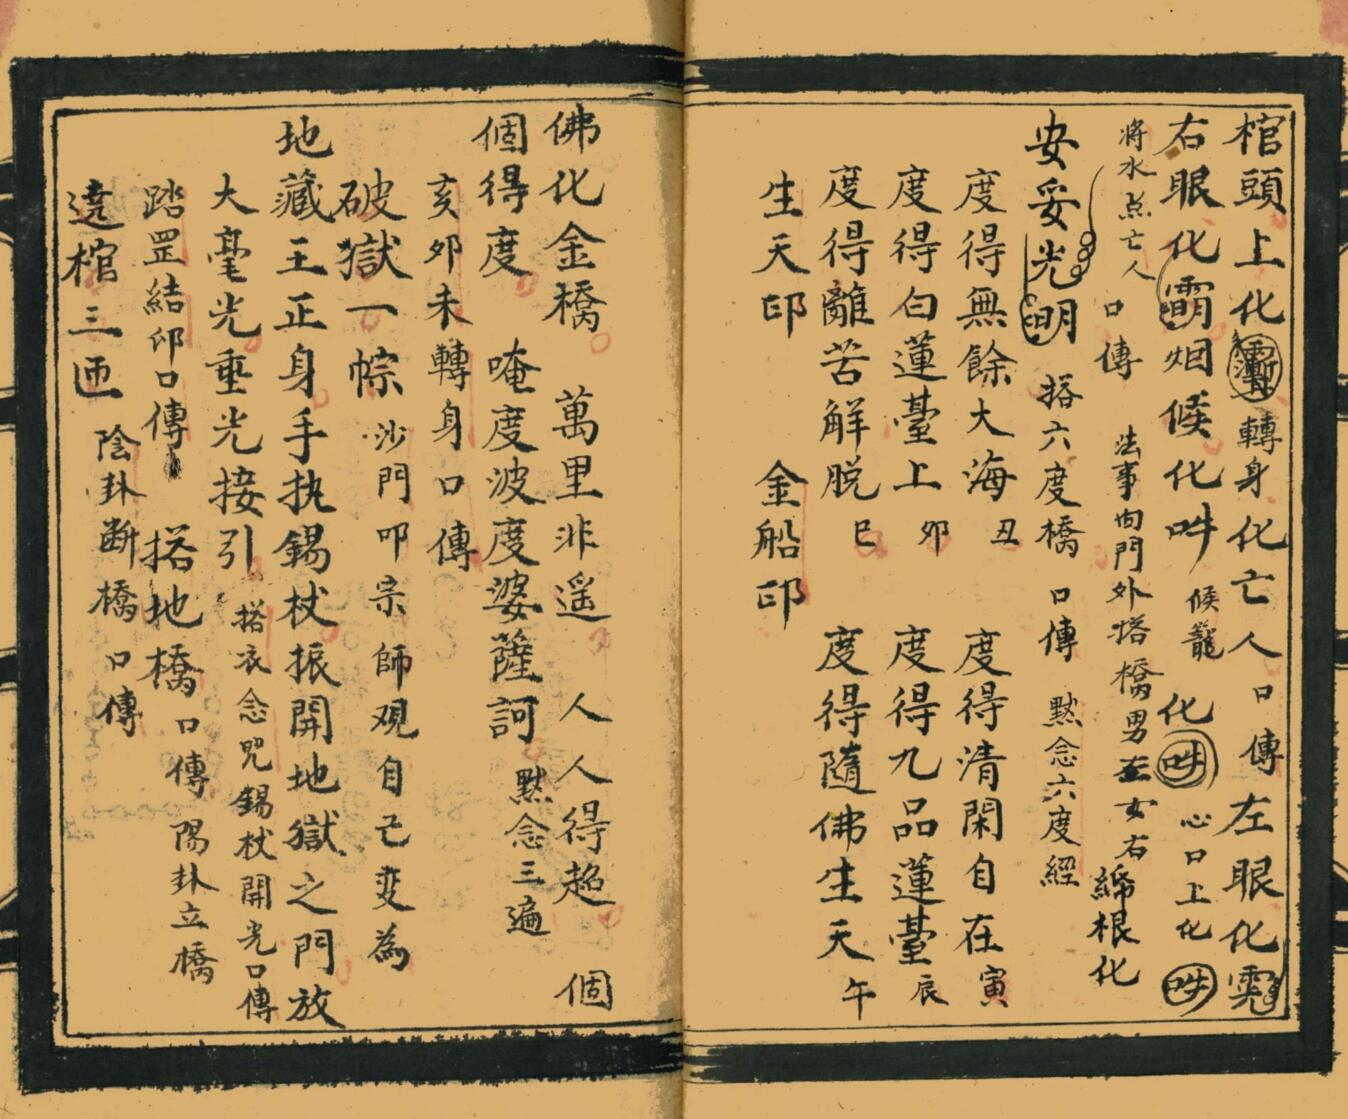 棺頭上化轉身化亡人口傳左眼化
右眼化烟候化吽候籠化吽心口上化吽
将水点亡人口傳法事向門外搭橋男左女右締根化
安妥光明搭六度橋口傳默念六度經
度得無餘大海丑度得清閑自在寅
度得白蓮臺上夘度得九品蓮臺辰
度得離苦解脱巳度得隨佛生天午
生天印金船印
佛化金橋萬里非遥人人得超個
個得度唵度波度婆薩訶默念三遍
亥夘未轉身口傳
破獄一惊沙門叩宗師观自己变為
地藏王正身手执錫杖振開地獄之門放
大毫光垂光接引搭衣念咒錫杖開光口傳
踏罡結印口傳搭地橋口傳陽卦立橋
遶棺三匝陰卦断橋口傳